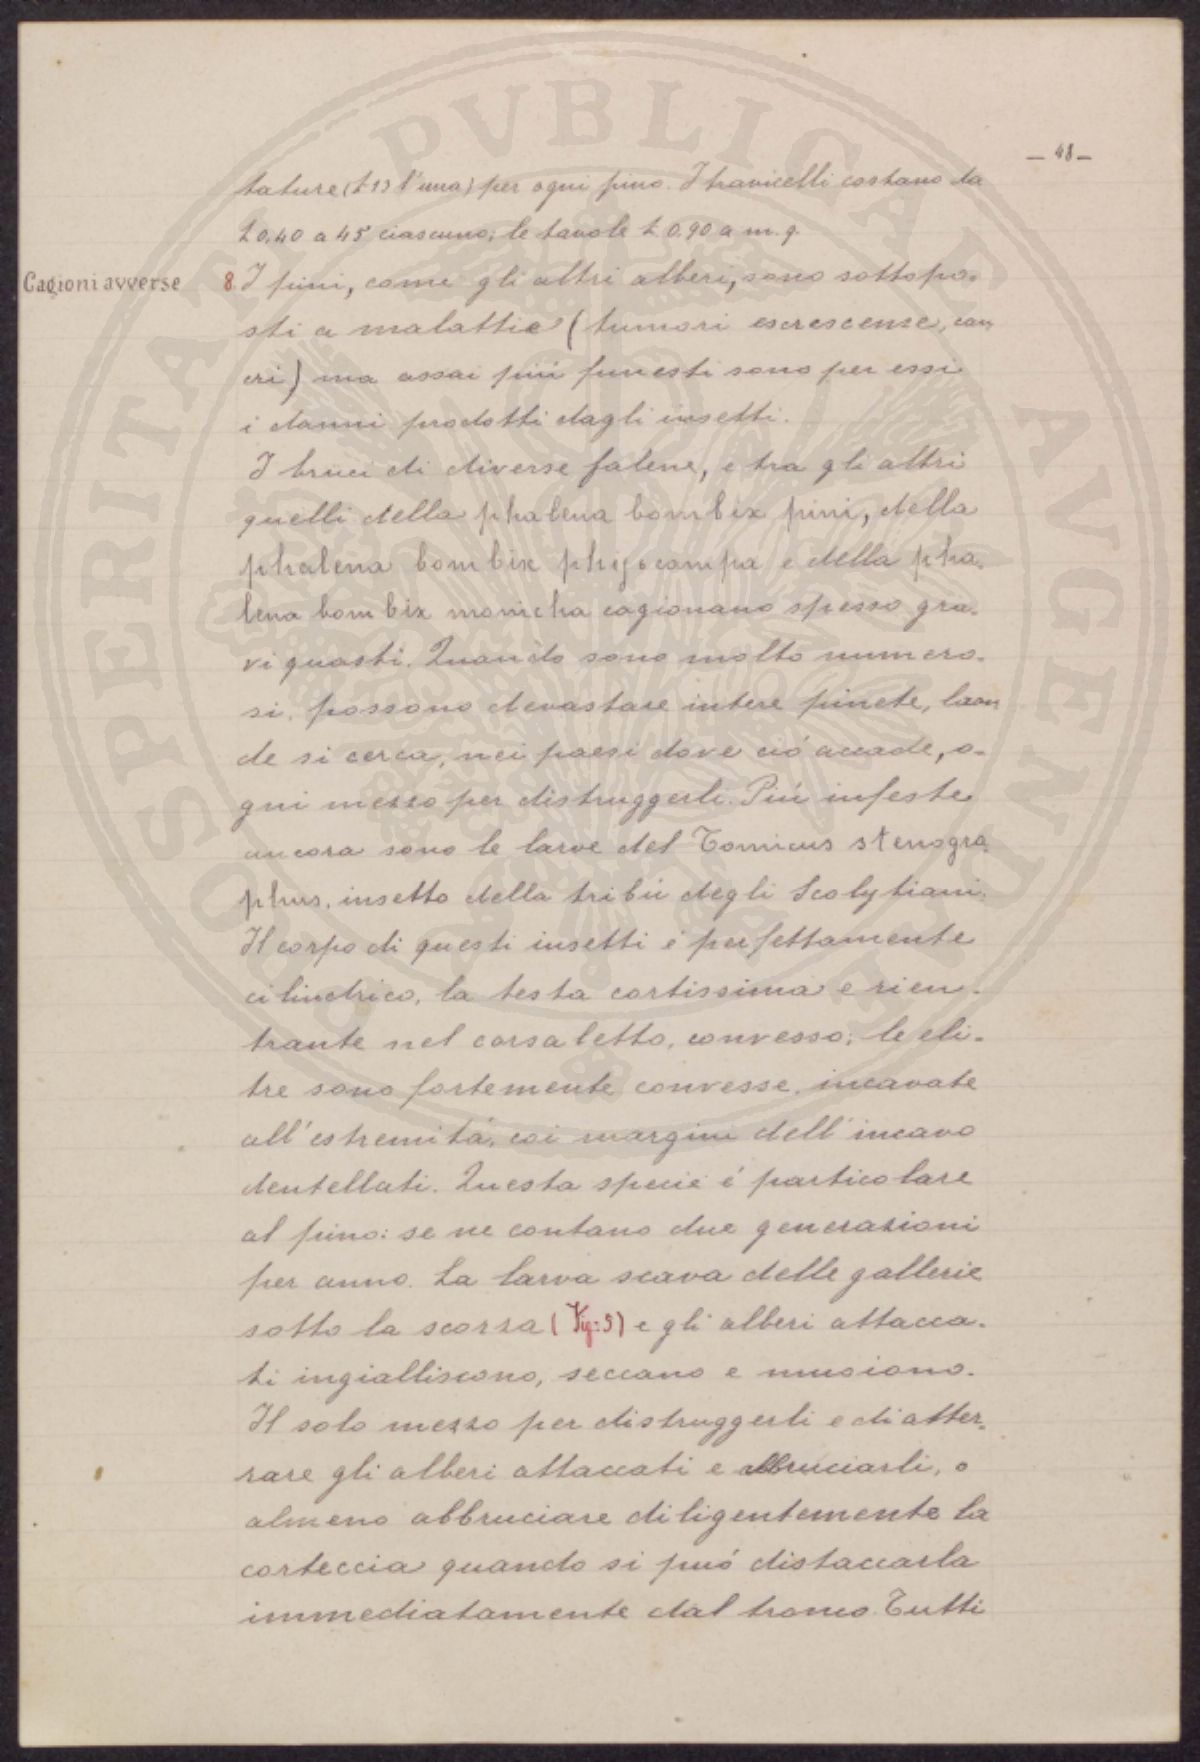 — 48 —
tature (£ 13 l'una) per ogni pino. I travicelli costano da
£ 0,40 a 45 ciascuno; le tavole £ 0.90 a m. q.
Cagioni avverse
8. I pini, come gli altri alberi, sono sottopo-
sti a malattie (tumori escrescenze, can
cri) ma assai piú funesti sono per essi
i danni prodotti dagli insetti.
I bruci di diverse falene, e tra gli altri
quelli della phalena bombix pini, della
phalena bombix phyocampa e della pha-
lena bombix monicha cagionano spesso gra-
vi guasti. Quando sono molto numero-
si, possono devastare intere pinete, laon
de si cerca, nei paesi dove ció accade, o-
gni mezzo per distruggerli. Piú infeste
ancora sono le larve del Tomicus stenogra-
phus, insetto della tribú degli Scolytiani.
Il corpo di questi insetti é perfettamente
cilindrico, la testa cortissima e rien-
trante nel corsaletto, convesso; le eli-
tre sono fortemente convesse, incavate
all'estremitá, coi margini dell'incavo
dentellati. Questa specie é particolare
al pino: se ne contano due generazioni
per anno. La larva scava delle gallerie
sotto la scorza (Fig: 5) e gli alberi attacca-
ti ingialliscono, seccano e muoiono.
Il solo mezzo per distruggerli e di atter-
rare gli alberi attaccati e abbruciarli, o
almeno abbruciare diligentemente la
corteccia quando si puó distaccarla
immediatamente dal tronco. Tutti
PVBLICAE AVGENDAE
PROSPERITATI